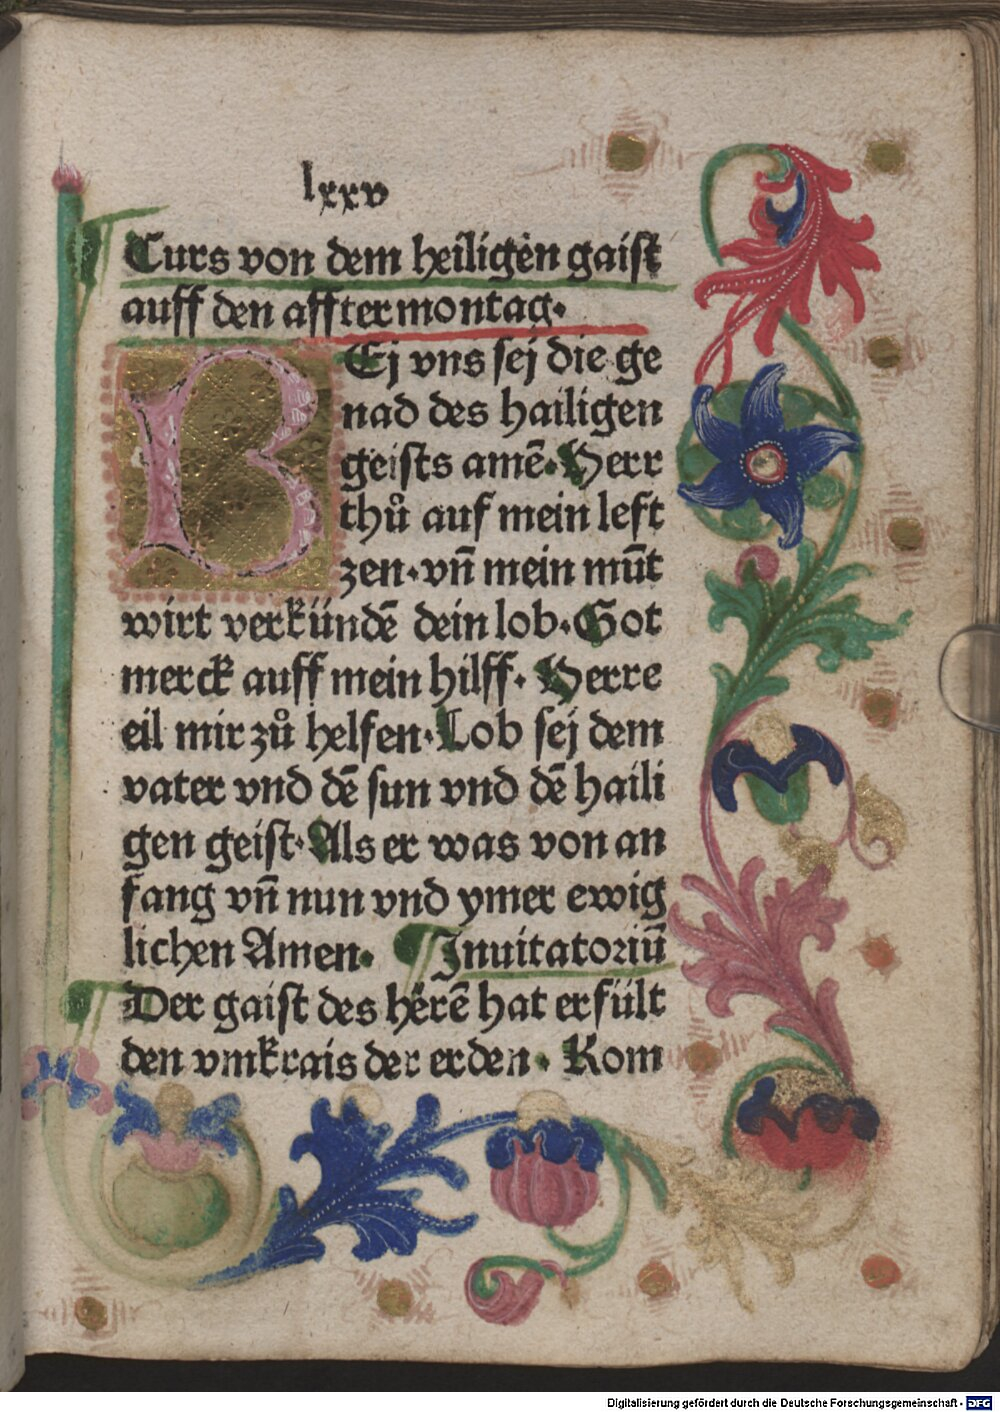 lxxv
Curs von dem heiligen gaist
auff den afftermontag.
BEj vns sej die ge
nad des hailigen
geists amē. Herr
thů auf mein left
zen. vn̄ mein mūt
wirt verkündē dein lob. Got
merck auff mein hilff. Herre
eil mir zů helfen. Lob sej dem
vater vnd dē sun vnd dē haili
gen geist. Als er was von an
fang vn̄ nun vnd ymer ewig
lichen Amen. ¶ Inuitatoriū
Der gaist des herē hat erfült
den vmkrais der erden. Kom
Digitalisierung gefördert durch die Deutsche Forschungsgemeinschaft - DFG